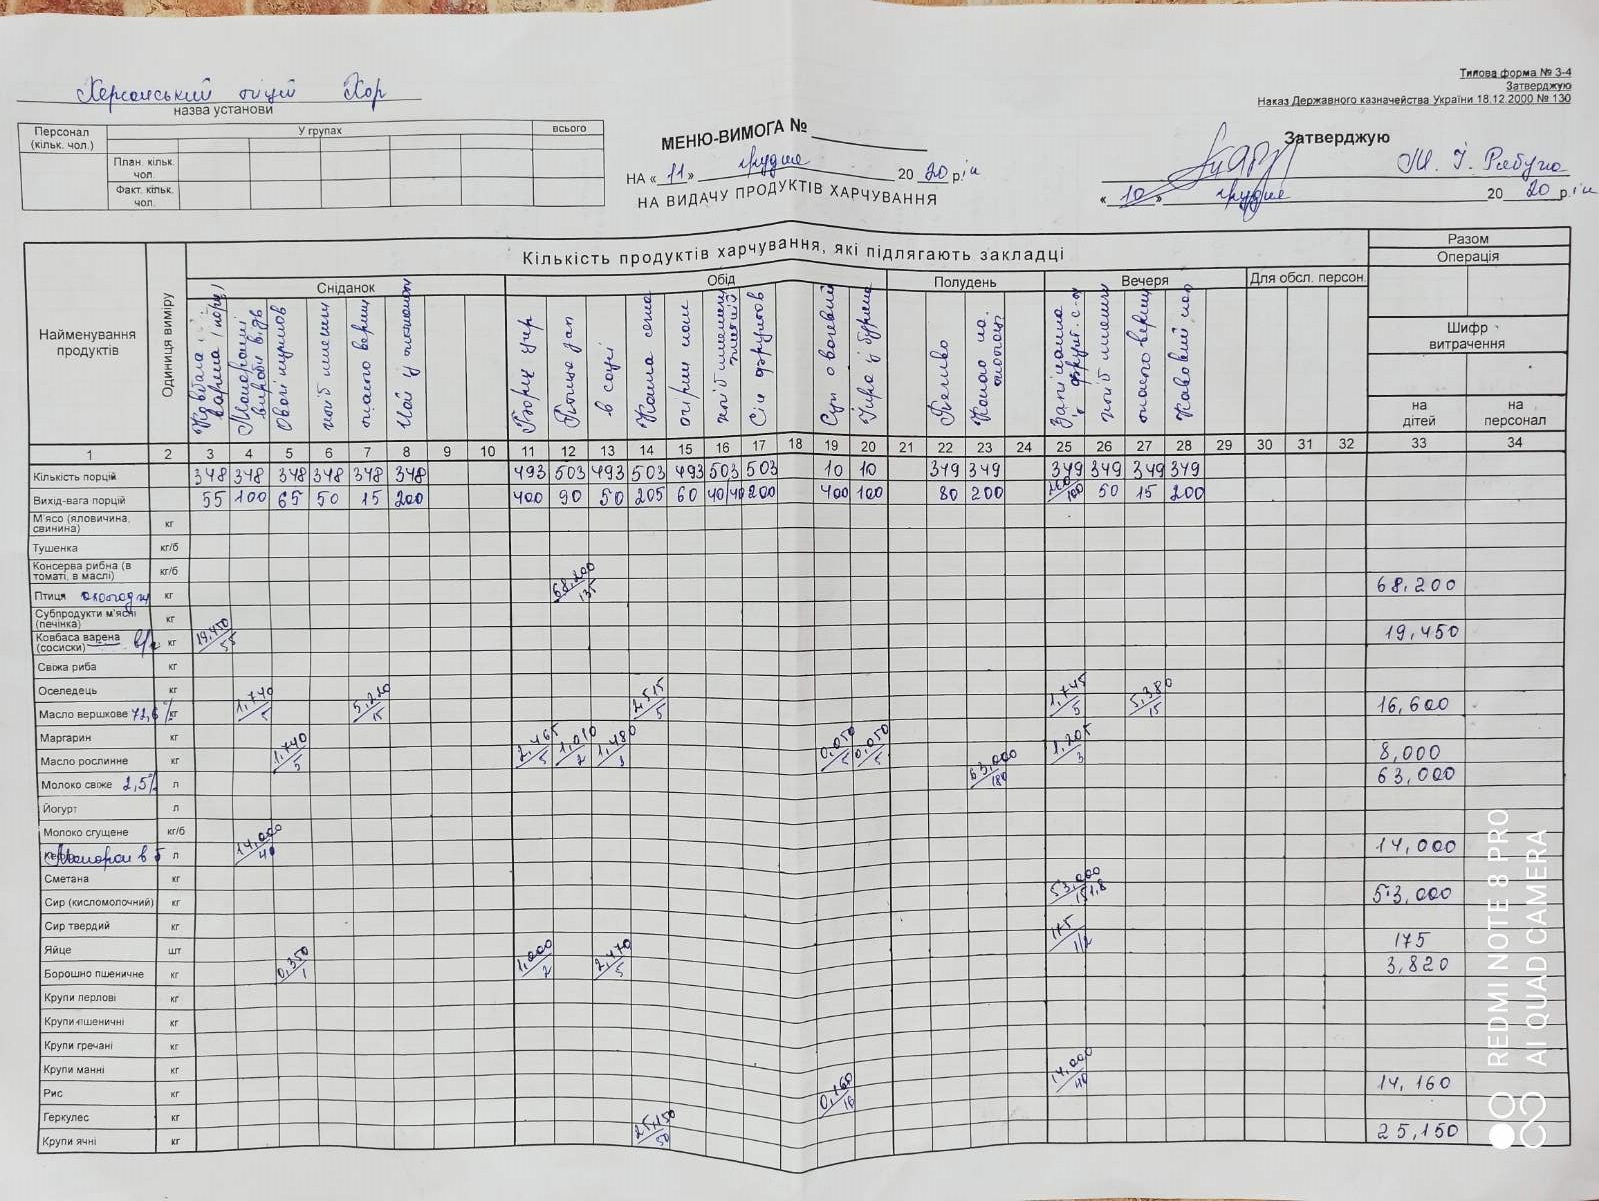 Типова форма № З-4
Затверджую
Наказ Державного казначейства України 18.12.2000 № 130
Херсонський ліцей
назва установи
Персонал (кільк. чол.)
У групах
всього
План. кільк. чол.
Факт. кільк. чол.
МЕНЮ-ВИМОГА №
НА « 11 » грудня 20 20 р.
НА ВИДАЧУ ПРОДУКТІВ ХАРЧУВАННЯ
Затверджую
« 10 » грудня 20 20 р.
Найменування продуктів
Одиниця виміру
Кількість продуктів харчування, які підлягають закладці
Разом
Операція
Сніданок
Обід
Полудень
Вечеря
Для обсл. персон.
Шифр витрачення
на дітей
на персонал
Борщ укр
Птиця зап
в соусі
Сік фруктів
Печиво
1 2 3 4 5 6 7 8 9 10 11 12 13 14 15 16 17 18 19 20 21 22 23 24 25 26 27 28 29 30 31 32 33 34
Кількість порцій 348 348 348 348 348 348 493 503 493 503 493 503 503 10 10 349 349 349 349 349 349
Вихід-вага порцій 55 100 65 50 15 200 400 90 50 205 60 40/40 200 400 100 80 200 50 15 200
М'ясо (яловичина, свинина) кг
Тушенка кг/б
Консерва рибна (в томаті, в маслі) кг/б
Птиця кг 68,200/135 68,200
Субпродукти м'ясні (печінка) кг
Ковбаса варена (сосиски) кг 19,450/55 19,450
Свіжа риба кг
Оселедець кг
Масло вершкове 72,6% кг 1,740/5 5,220/15 2,515/5 1,745/5 5,380/15 16,600
Маргарин кг
Масло рослинне кг 1,740/5 2,465/5 1,010/2 1,480/3 0,050/5 0,050/5 1,205/3 8,000
Молоко свіже 2,5% л 63,000/180 63,000
Йогурт л
Молоко сгущене кг/б
л 14,000/40 14,000
Сметана кг
Сир (кисломолочний) кг 53,000/151,8 53,000
Сир твердий кг
Яйце шт 175/1/2 175
Борошно пшеничне кг 0,350/1 1,000/2 2,470/5 3,820
Крупи перлові кг
Крупи пшеничні кг
Крупи гречані кг
Крупи манні кг 14,000/40
Рис кг 0,160/16 14,160
Геркулес кг
Крупи ячні кг 25,150/50 25,150
REDMI NOTE 8 PRO
AI QUAD CAMERA